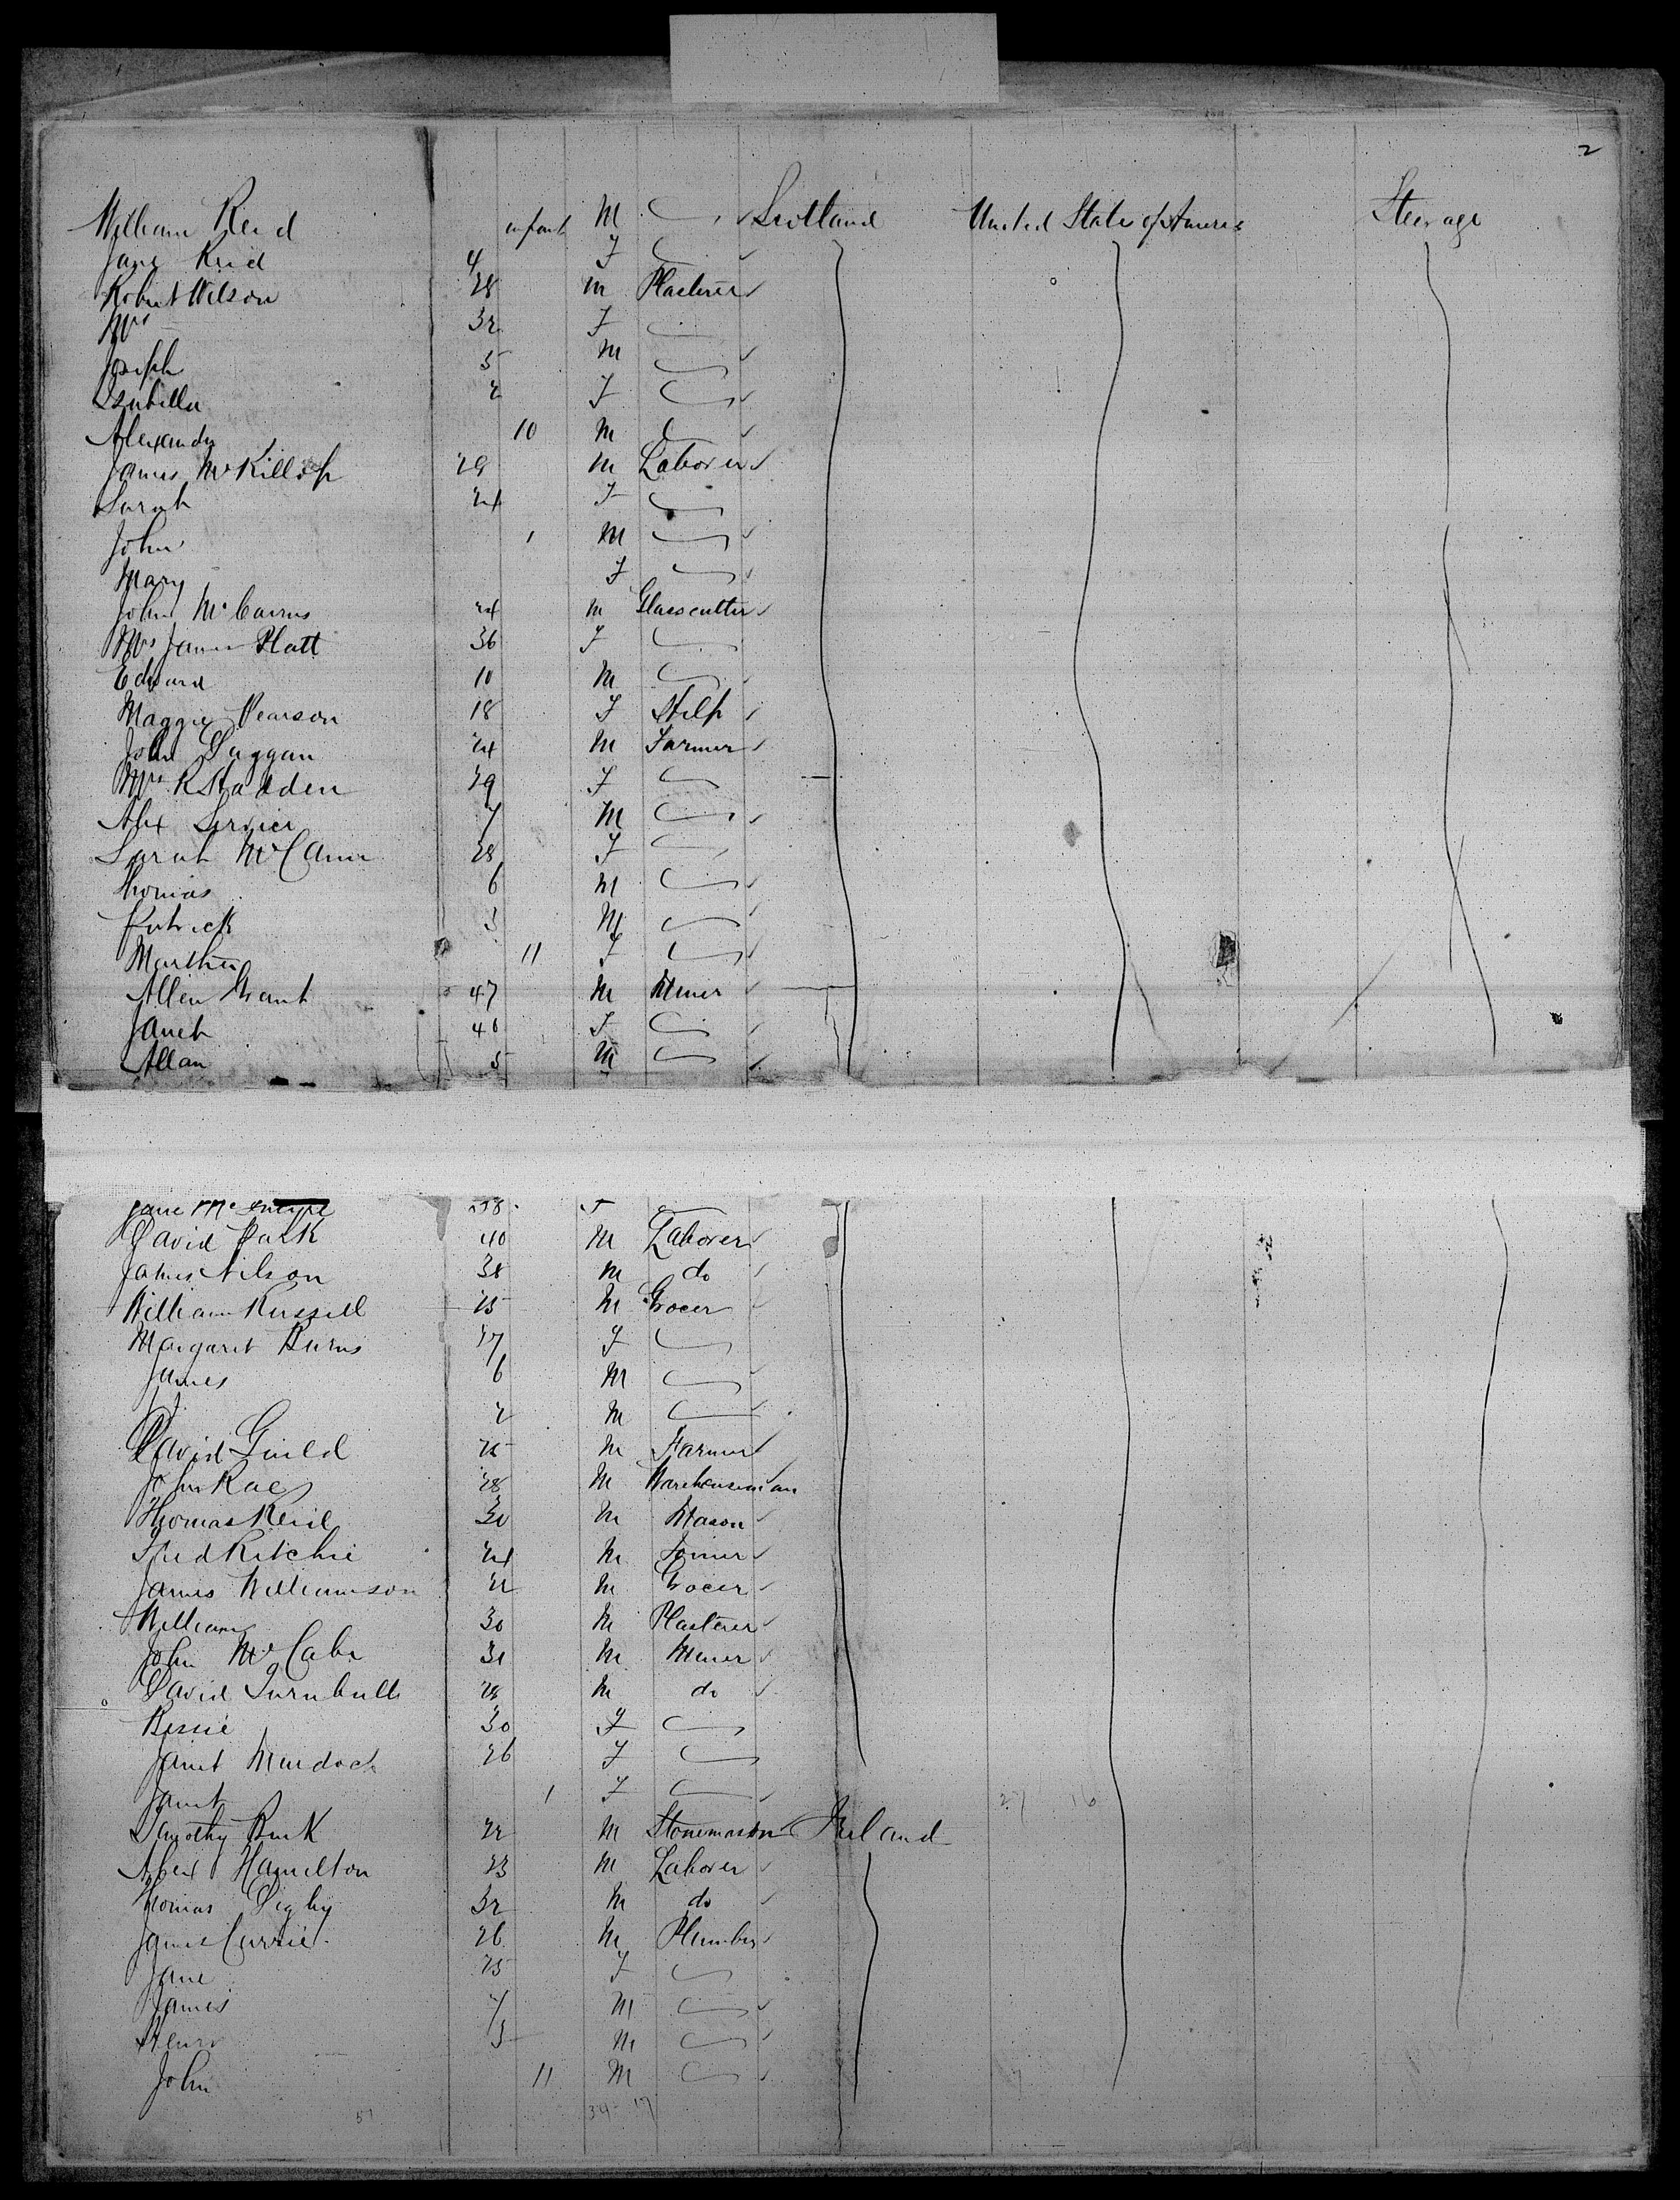 2
William Reid infant M Scotland United State of America Steerage
Jane Reid 4 F
Robert Wilson 28 m Plasterer
Mrs 32 F
Joseph 5 M
Isabella 2 F
Alexandr 10 M
James McKillop 29 M Laborer
Sarah 24 F
John 1 M
Mary F
John McCairns 24 M Glasscutter
Mrs James Platt 36 F
Edward 10 M
Maggie Pearson 18 F Help
John Duggan 24 M Farmer
Mrs R Stadden 29 F
Alex Servier 7 M
Sarah McCann 28 F
Thomas 6 M
Patrick 3 M
Martha 11 F
Allen Grant 47 M Miner
Janet 40 F
Allan 5 M
Jane McIntyre 58 F
David Park 40 M Laborer
James Nilson 38 M do
William Russell 25 M Grocer
Margaret Burns 27 F
James 6 M
J 2 M
David Guild 25 M Farmer
John Rae 28 M Warehouseman
Thomas Reid 30 M Mason
Fred Ritchie 24 M Joiner
James Williamson 22 M Grocer
William 30 M Plasterer
John McCabe 31 M Miner
David Turnbull 28 M do
Bessie 30 F
Janet Murdoch 26 F
Janet 1 F 27 16
Timothy Burk 22 M Stonemason Ireland
Alex Hamilton 23 M Laborer
Thomas Digby 32 M do
James Currie 26 M Plumber
Jane 25 F
James 7 M
Henry 5 M
John 11 M
51 34 17